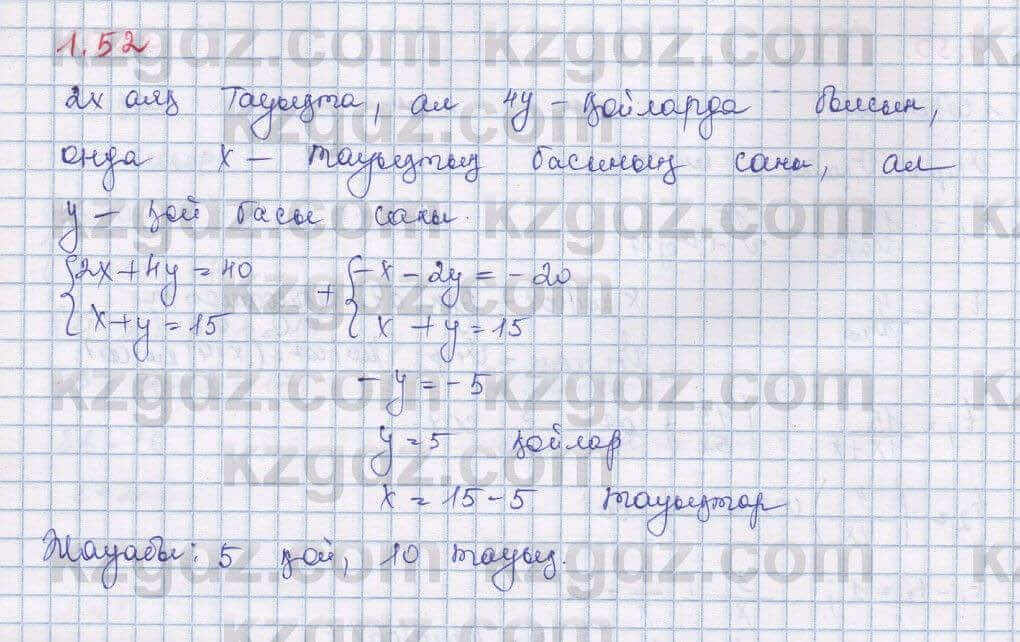 1.52
2x аяқ тауықта, ал 4y – қойларда болсын,
онда x – тауықтың басының саны, ал
y – қой басы саны.
{2x + 4y = 40 + {-x - 2y = -20
{x + y = 15 {x + y = 15
-y = -5
y = 5 қойлар
x = 15 - 5 тауықтар
Жауабы: 5 қой, 10 тауық.
kzgdz.com